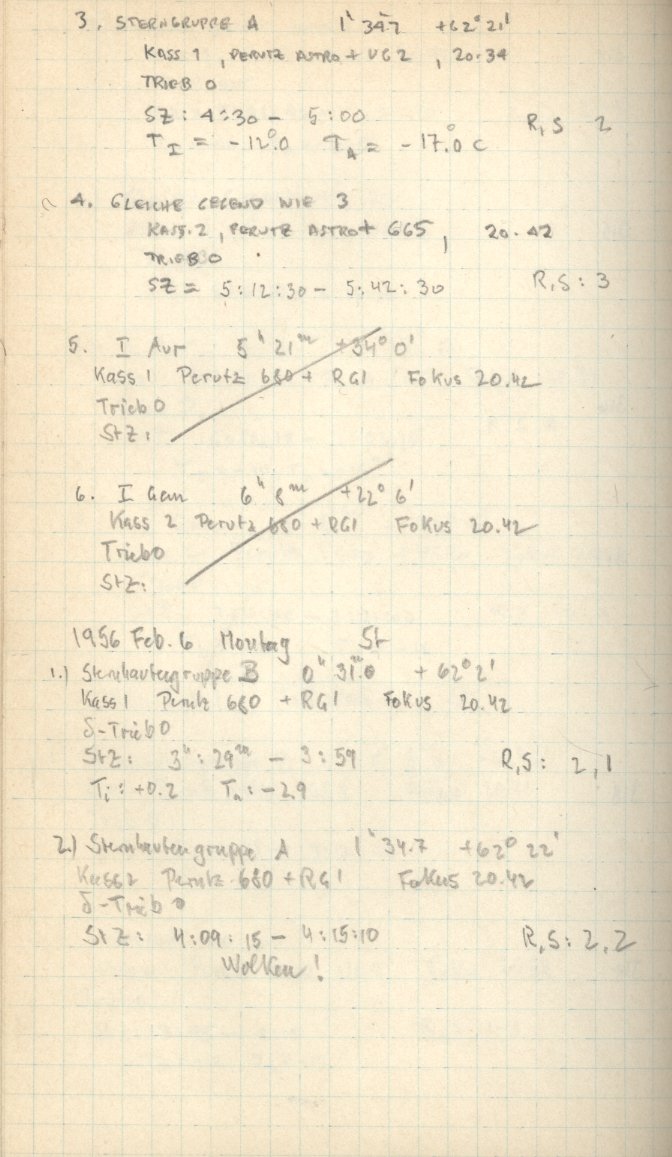 3. STERNGRUPPE A 1ʰ 34.7 +62° 21'
KASS 1, PERUTZ ASTRO + UG2, 20.34
TRIEB 0
SZ: 4:30 – 5:00 R,S 2
T_I = -12°.0 T_A = -17.0°C
4. GLEICHE GEGEND WIE 3
KASS. 2, PERUTZ ASTRO + GG5, 20.42
TRIEB 0
SZ = 5:12:30 – 5:42:30 R,S: 3
5. I Aur 5ʰ 21ᵐ +34° 0'
Kass 1 Perutz 680 + RG1 Fokus 20.42
Trieb 0
StZ:
6. I Gem 6ʰ 8ᵐ +22° 6'
Kass 2 Perutz 680 + RG1 Fokus 20.42
Trieb 0
StZ:
1956 Feb. 6 Montag St
1.) Sternhaufengruppe B 0ʰ 31ᵐ.0 +62° 2'
Kass 1 Perutz 680 + RG1 Fokus 20.42
δ-Trieb 0
StZ: 3ʰ: 29ᵐ – 3:59 R,S: 2,1
T_i: +0.2 T_a: -2.9
2.) Sternhaufengruppe A 1ʰ 34.7 +62° 22'
Kass 2 Perutz 680 + RG1 Fokus 20.42
δ-Trieb 0
StZ: 4:09:15 – 4:15:10 R,S: 2,2
Wolken!